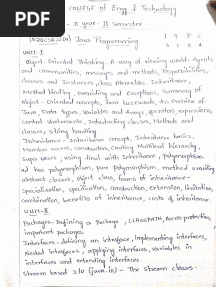 PDF
COLLEGE OF Engg & Technology
II year - II Semester
L T P C
Java Programming
UNIT-I
Object-Oriented Thinking: A way of viewing world - Agents
and communities, messages and methods, Responsibilities,
classes and Instances, class Hierarchies, Inheritance,
Method binding, overriding and Exceptions, Summary of
Object-Oriented concepts, Java buzzwords, An Overview of
Java, Data types, Variables and Arrays, operators, expressions,
control statements, Introducing classes, Methods and
classes, string handling
Inheritance: Inheritance concept, Inheritance basics,
Member access, Constructors, Creating Multilevel hierarchy,
super uses, using final with Inheritance, Polymorphism-
ad hoc polymorphism, pure Polymorphism, method overriding
abstract classes, object class, forms of inheritance-
specialization, specification, construction, extension, limitation,
combination, benefits of inheritance, costs of inheritance.
UNIT-II
Packages- Defining a Package, CLASSPATH, Access protection,
important packages.
Interfaces- defining an interface, implementing interfaces,
Nested interfaces, applying interfaces, variables in
interfaces and extending interfaces.
Stream based I/O (java.io) - The Stream classes-